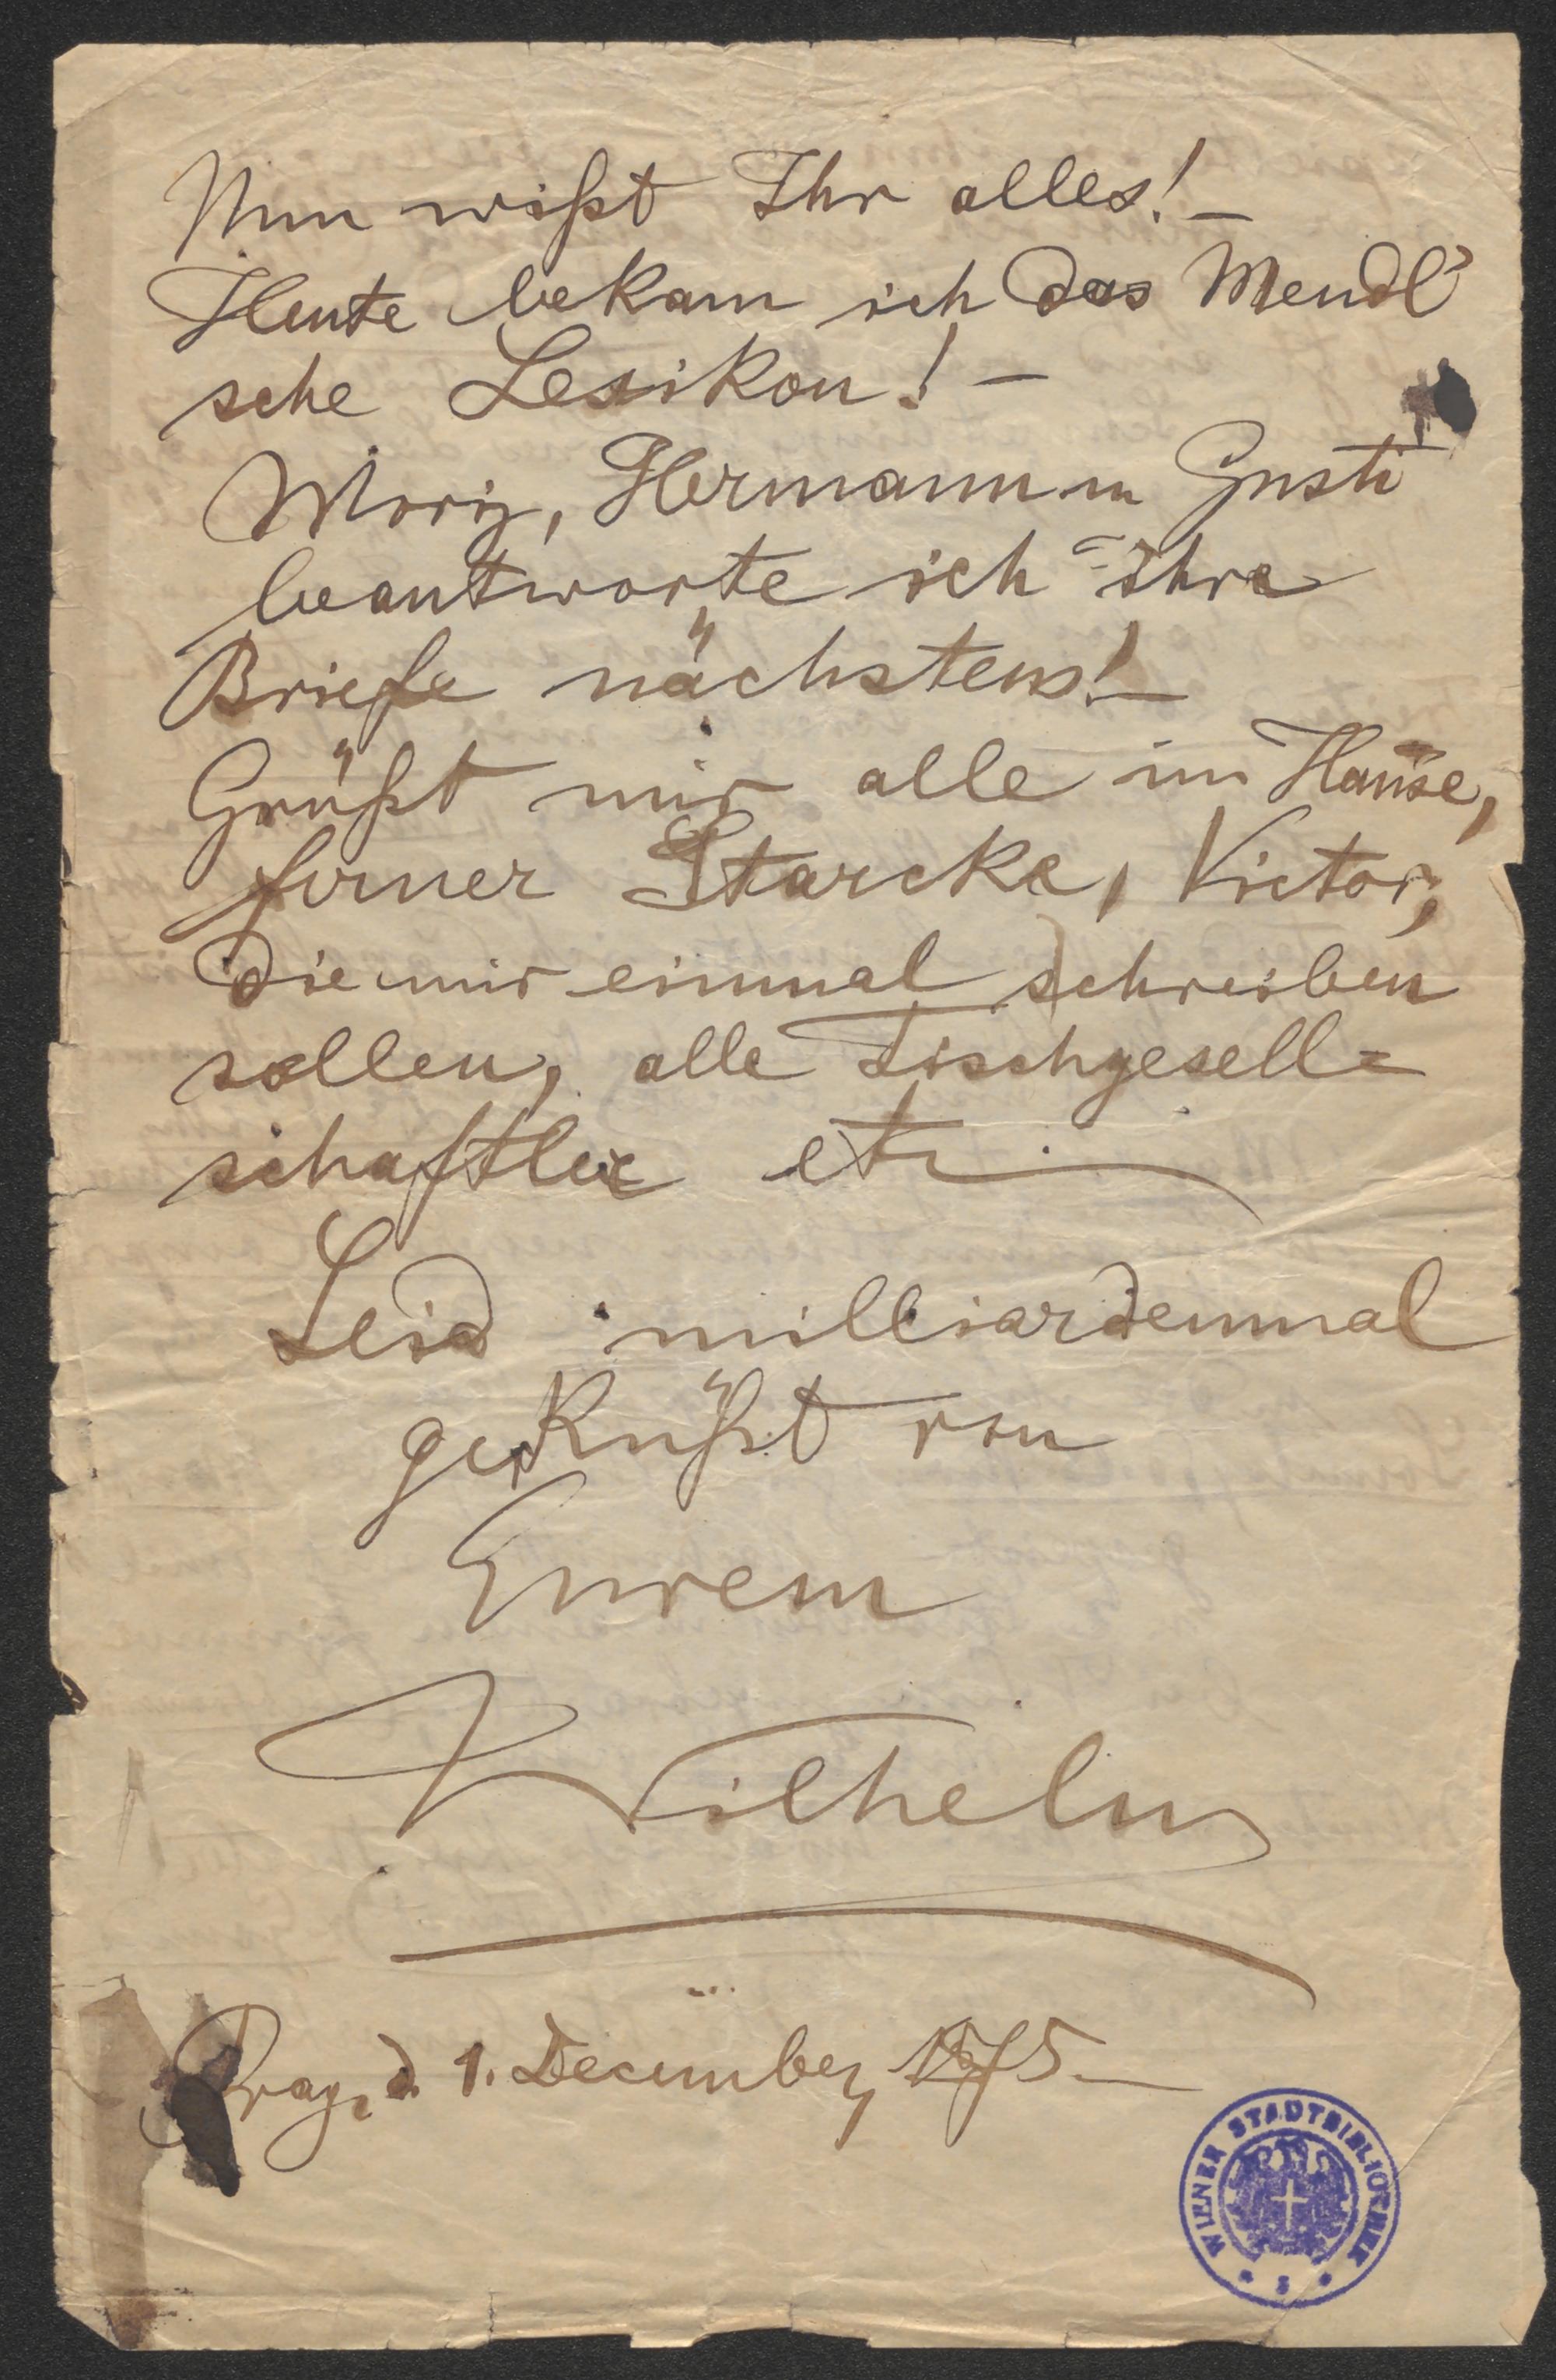 Nun wißt Ihr alles! –
Heute bekam ich das Mendl'
sche Lexikon! –
Moriz, Hermann u Gusti
beantworte ich ihre
Briefe nächstens! –
Grüßt mir alle im Hause,
ferner Starcke, Victor,
die mir einmal schreiben
sollen, alle Tischgesell=
schaftler etc.
Seid milliardenmal
geküßt von
Eurem
Wilhelm
Prag, d. 1. December 1875 –
WIENER STADTBIBLIOTHEK